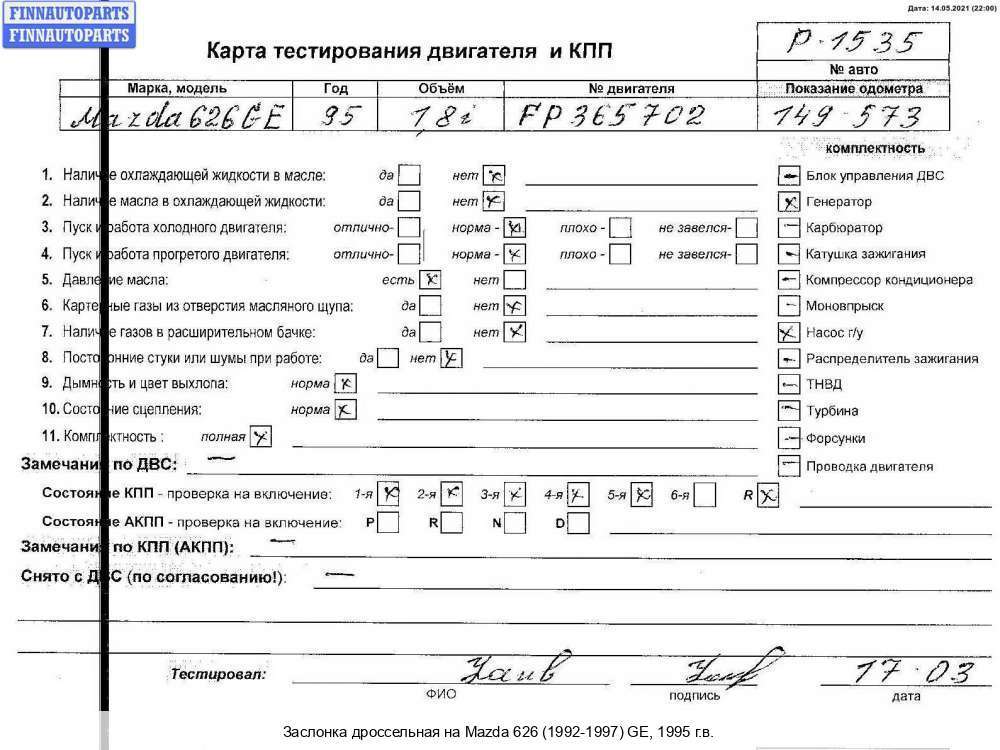 Дата: 14.05.2021 (22:00)
FINNAUTOPARTS
FINNAUTOPARTS
Карта тестирования двигателя и КПП
P-1535
№ авто
Марка, модель Год Объём № двигателя Показание одометра
Mazda 626 GE 95 1,8i FP 365702 149 573
комплектность
1. Наличие охлаждающей жидкости в масле: да нет x
Блок управления ДВС
2. Наличие масла в охлаждающей жидкости: да нет x
x Генератор
3. Пуск и работа холодного двигателя: отлично- норма - x плохо - не завелся-
Карбюратор
4. Пуск и работа прогретого двигателя: отлично- норма - x плохо - не завелся-
Катушка зажигания
5. Давление масла: есть x нет
Компрессор кондиционера
6. Картерные газы из отверстия масляного щупа: да нет x
Моновпрыск
7. Наличие газов в расширительном бачке: да нет x
x Насос г/у
8. Посторонние стуки или шумы при работе: да нет x
Распределитель зажигания
9. Дымность и цвет выхлопа: норма x
ТНВД
10. Состояние сцепления: норма x
Турбина
11. Комплектность : полная x
Форсунки
Замечания по ДВС: —
Проводка двигателя
Состояние КПП - проверка на включение: 1-я x 2-я x 3-я x 4-я x 5-я x 6-я R x
Состояние АКПП - проверка на включение: P R N D
Замечания по КПП (АКПП): —
Снято с ДВС (по согласованию!): —
Тестировал: 17-03
ФИО подпись дата
Заслонка дроссельная на Mazda 626 (1992-1997) GE, 1995 г.в.